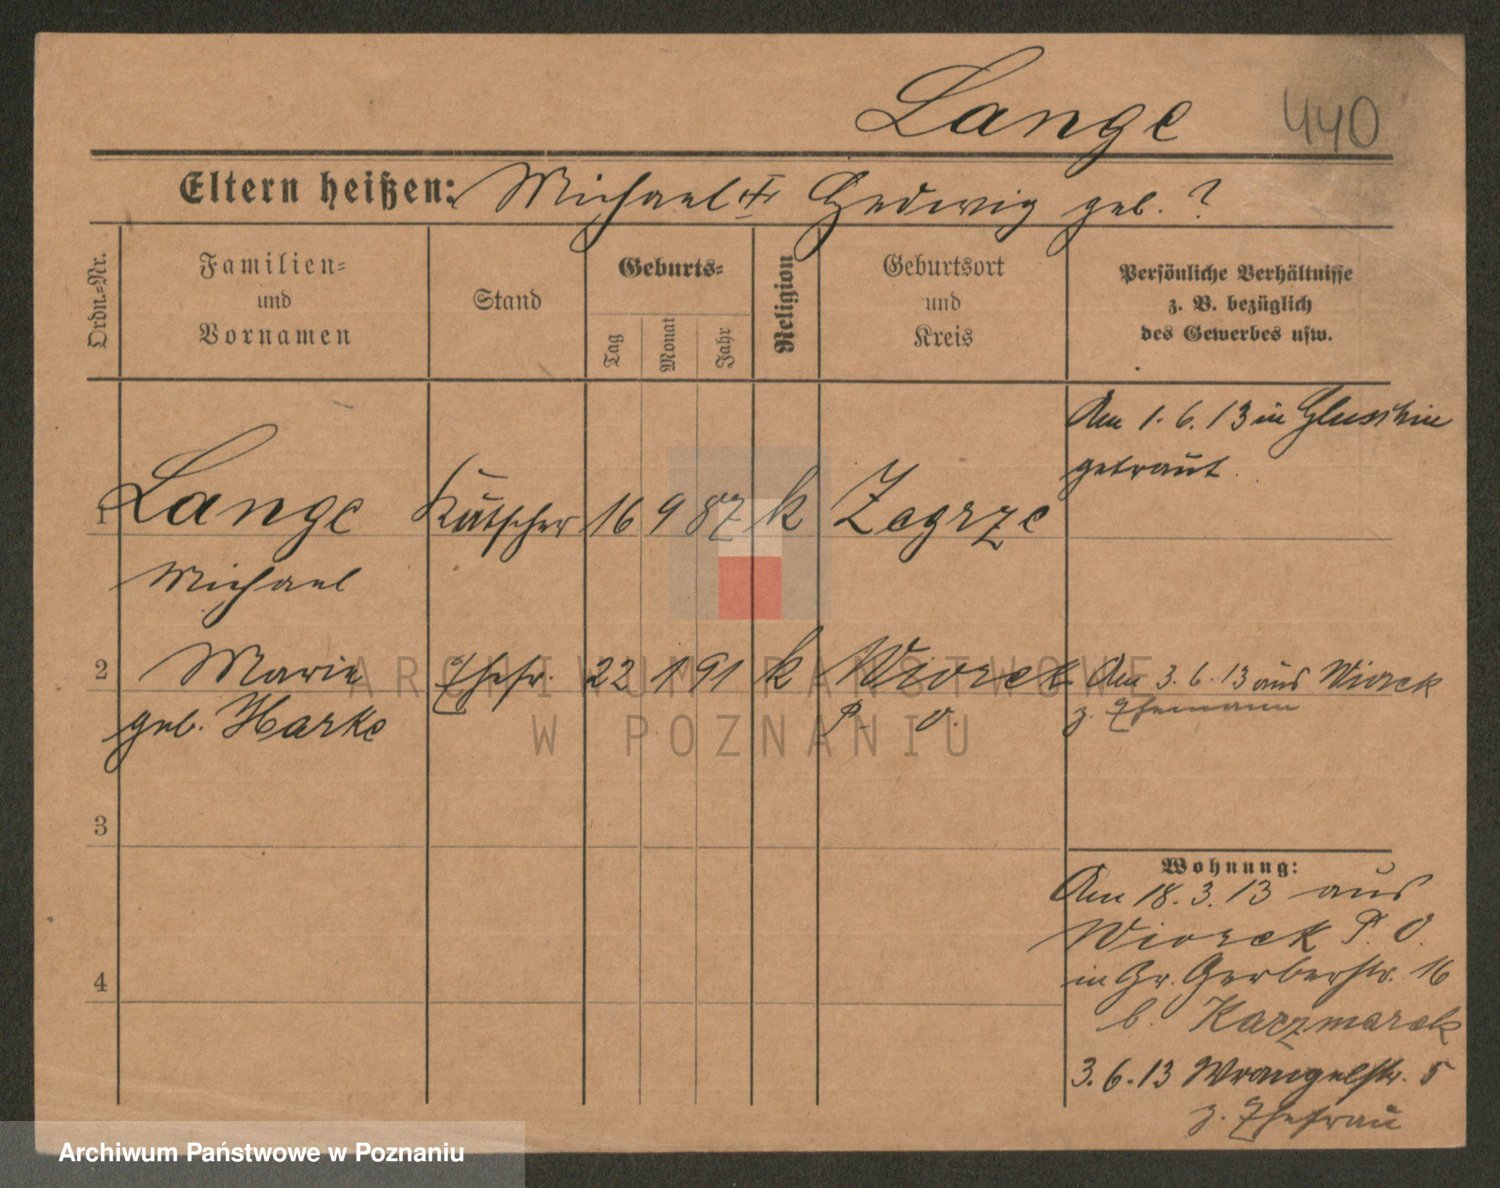 Lange 440
Eltern heißen: Michael Hedwig geb. ?
Ordn.=Nr.
Familien=
und
Vornamen
Stand
Geburts=
Tag
Monat
Jahr
Religion
Geburtsort
und
Kreis
Persönliche Verhältnisse
z. B. bezüglich
des Gewerbes usw.
Am 1. 6. 13 in Glusschin
getraut.
1 Lange Kutscher 16 9 87 k Zegrze
Michael
2 Marie Ehefr. 22 1 91 k Wiorek
geb. Harke P. O.
Am 3. 6. 13 aus Wiorek
z. Ehemann
3
4
Wohnung:
Am 18. 3. 13 aus
Wiorek P. O.
in Gr. Gerberstr. 16
b. Kaczmarek
3. 6. 13 Wrangelstr. 5
z. Ehefrau
ARCHIWUM PAŃSTWOWE
W POZNANIU
Archiwum Państwowe w Poznaniu